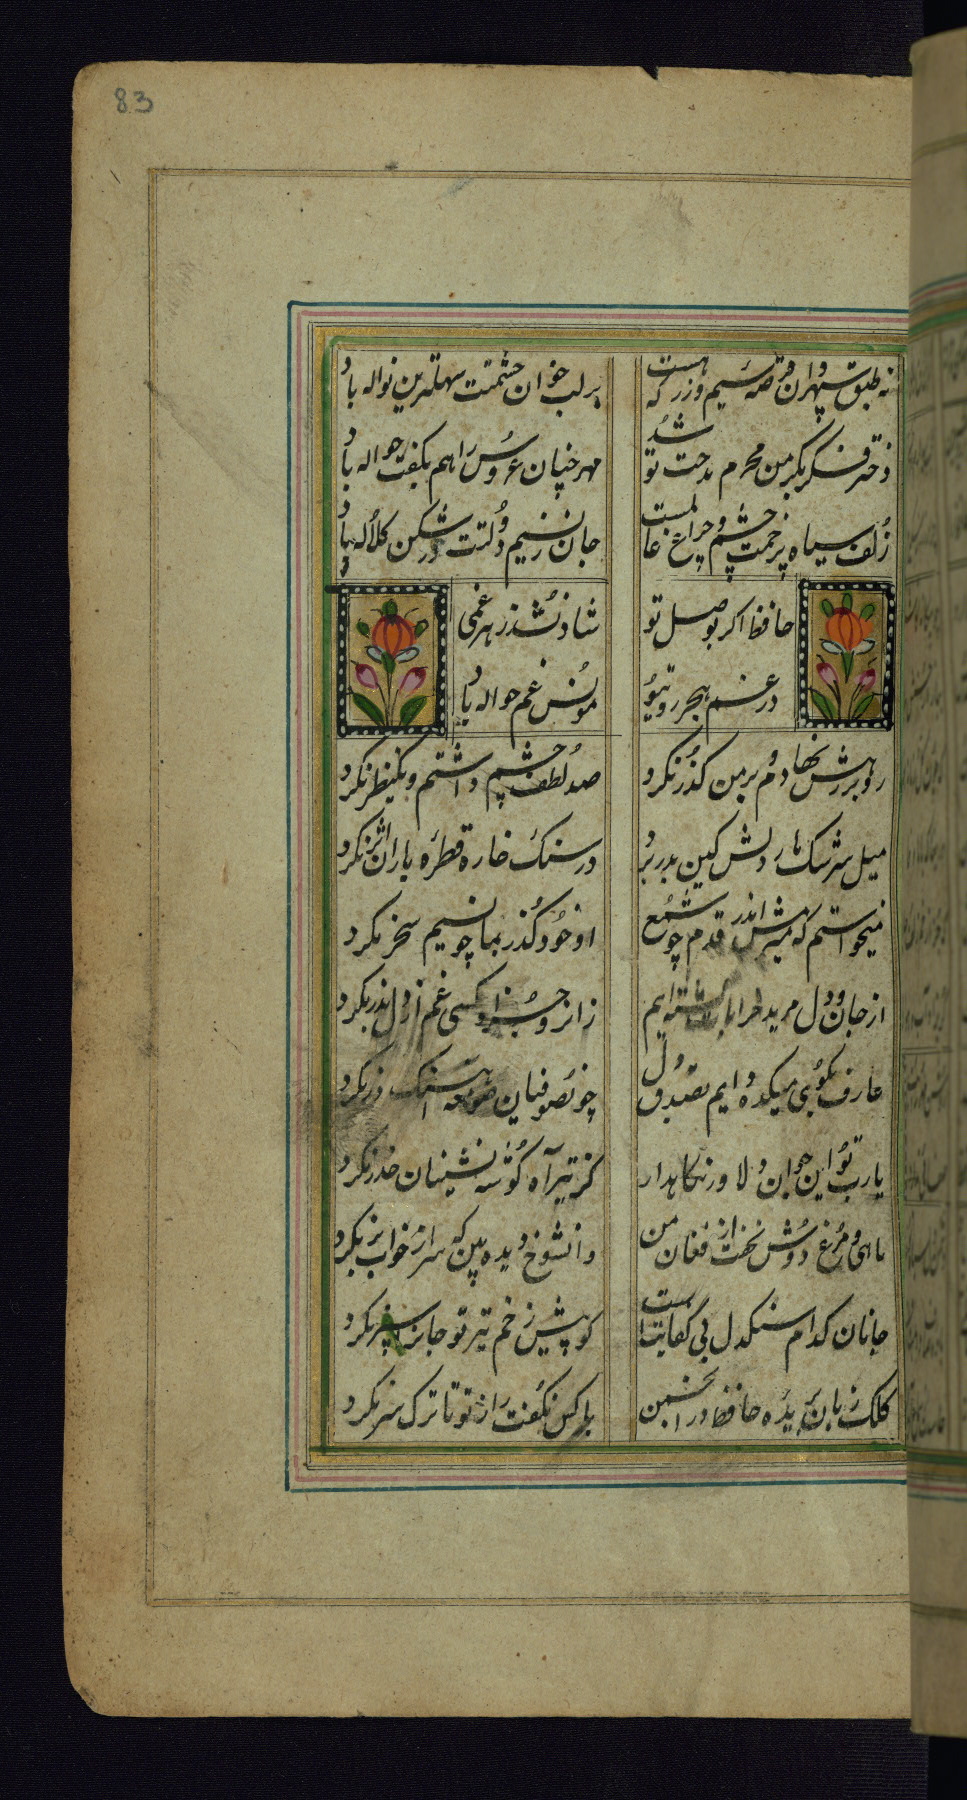 83
نه طبق سپهر و آن قرصه سیم و زر که هست
بر لب خوان حشمتت سهلترین نواله باد
دختر فکر بکر من محرم مدحت تو شد
مهر چنان عروس را هم بکفت حواله باد
زلف سیاه پر خمت چشم و چراغ عالمست
جان نسیم دولتت در شکن کلاله باد
حافظ اگر بوصل تو
شاد نشد ز هر غمی
در غم هجر روی تو
مونس غم حواله باد
رو بر رهش نهادم و بر من گذر نکرد
صد لطف چشم داشتم و یکنظر نکرد
سیل سرشک ما ز دلش کین بدر نبرد
در سنگ خاره قطره باران اثر نکرد
میخواستم که میرمش اندر قدم چو شمع
او خود گذر بما چو نسیم سحر نکرد
از جان و دل مرید خرابات گشته ایم
زانرو کسی غم از دل بدر نکرد
عارف بکوی میکده ایم
چون صوفیان صومعه آهنگ در نکرد
یارب تو این جوان دلاور نگاهدار
کز تیر آه گوشه نشینان حذر نکرد
ماهی و مرغ دوش نخفت از فغان من
وانشوخ دیده بین که سر از خواب بر نکرد
جانان کدام سنگدل بی کفایتست
کو پیش زخم تیر تو جان سپر نکرد
کلک زبان بریده حافظ در انجمن
با کس نگفت راز تو تا ترک سر نکرد